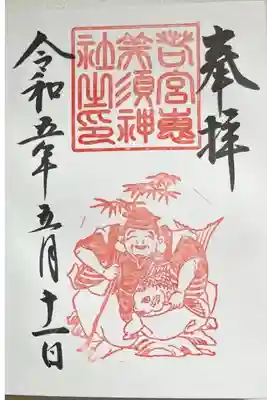 奉拝
若宮惠
美須神
社之印
令和五年五月十一日